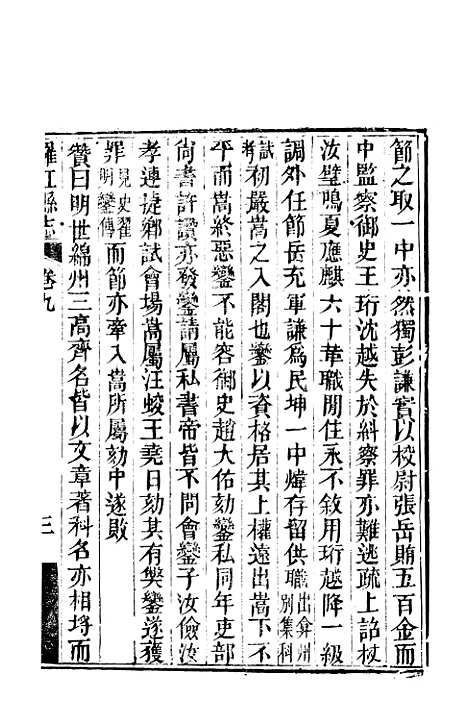 節之取一中亦然獨彭謙實以校尉張岳賄五百金而
中監察御史王珩沈越失於糾察罪亦難逃疏上詔杖
汝璧鳴夏應麒六十革職閒住永不敘用珩越降一級
調外任節岳充軍謙為民坤一中煒存留供職出弇州別集科
試考初嚴嵩之入閣也鑾以資格居其上權遠出嵩下不
平而嵩終惡鑾不能容御史趙大佑劾鑾私同年吏部
尚書許讚亦發鑾請屬私書帝皆不問會鑾子汝儉汝
孝連捷鄉試會場嵩屬汪蛟王堯日劾其有獘鑾遂獲
罪見史翟明鑾傳而節亦牽入嵩所屬劾中遂敗
贊曰明世綿州三高齊名皆以文章著科名亦相埒而
羅江縣志 卷九 三